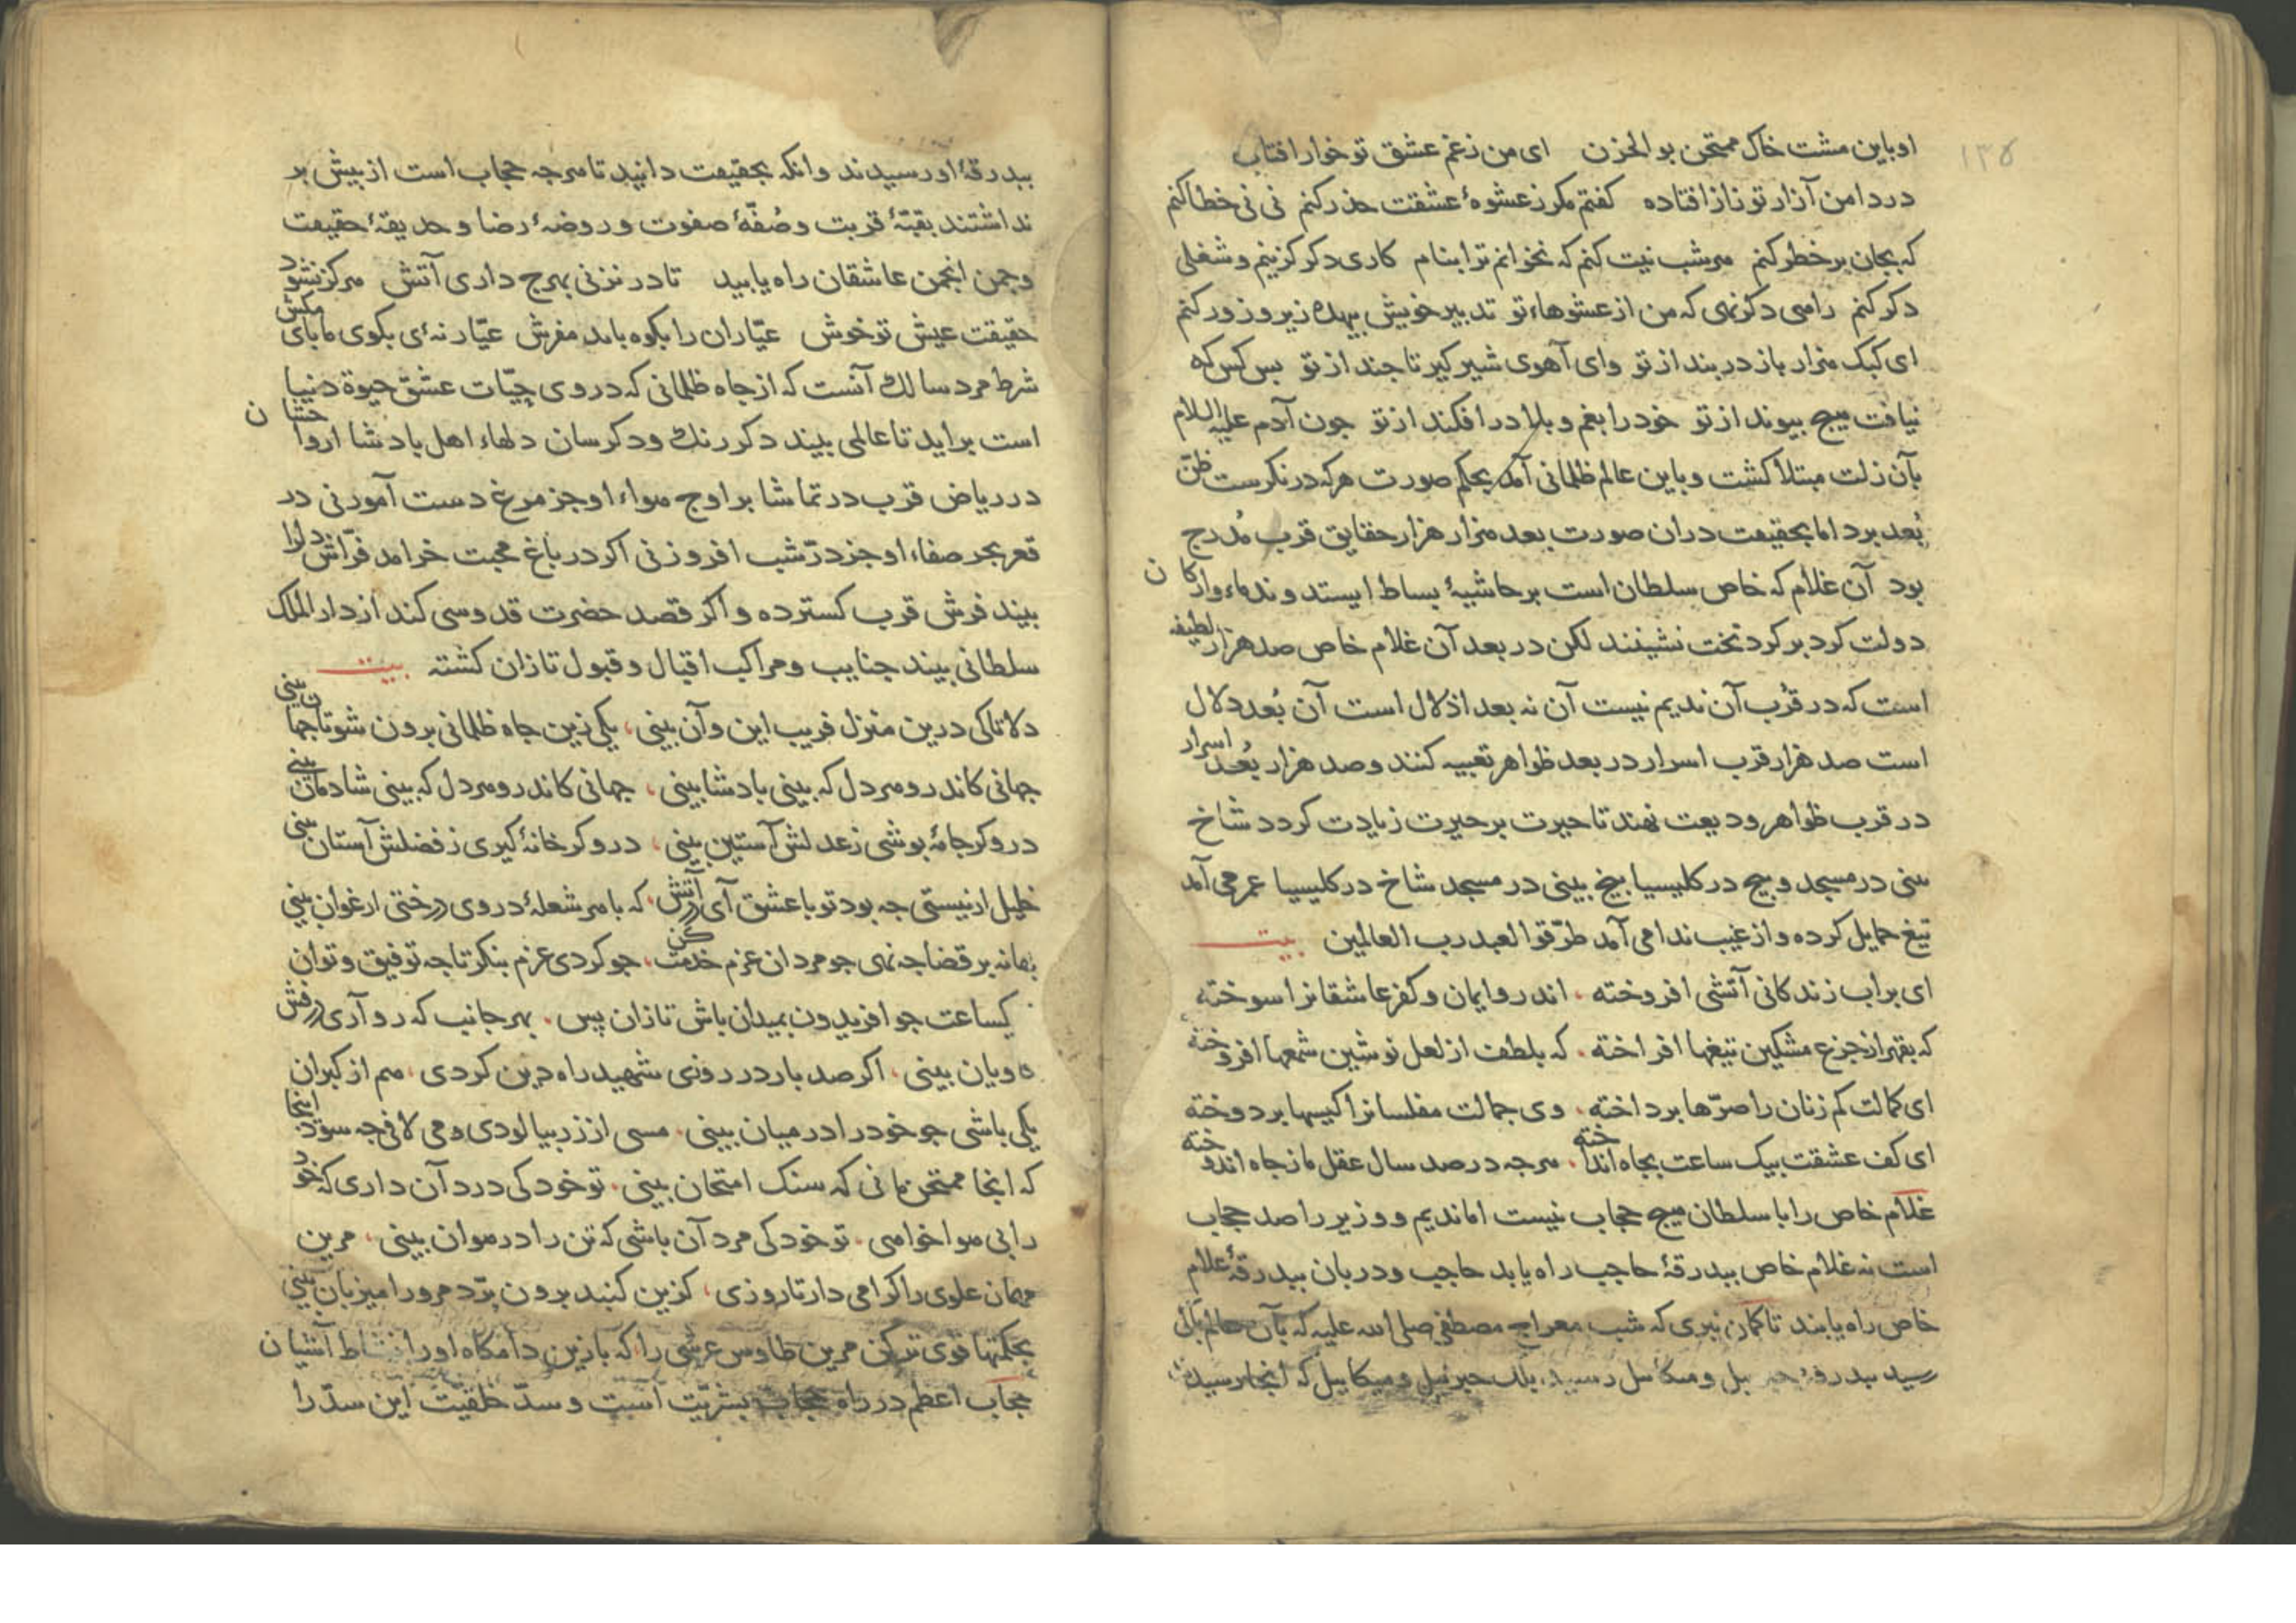 ١٣٥
او باین مشت خاک ممتحن بو الحزن ای من زغم عشق تو خوار افتاب
درد امن آزار تو زناز افتاده کفتم مکر زعشوهٔ عشقت حذر کنم نی نی خطا کنم
که بجان بر خطر کنم هر شب نیت کنم که نخوانم ترا بنام کاری دکر کزینم و شغلی
دکر کنم راهی دکر نهی که من از عشوهاء تو تدبیر خویش بیهده زیر و زور کنم
ای کبک هزار باز در بند از تو وای آهوی شیر کیر تا چند از تو بس کس که
نیافت هیچ بیوند از تو خود را بغم و بلا در افکند از تو جون آدم علیه السلام
بآن زلت مبتلا کشت و باین عالم ظلمانی آمد بحکم صورت هرکه در نکرست ظنّ
بُعد برد اما بحقیقت دران صورت بعد هزار هزار حقایق قرب مُدرج
بود آن غلام که خاص سلطان است بر حاشیهٔ بساط ایستد و ندماء و ارکان
دولت کرد بر کرد تخت نشینند لکن در بعد آن غلام خاص صد هزار لطیفه
است که در قُرب آن ندیم نیست آن نه بعد اذلال است آن بُعد دلال
است صد هزار قرب اسرار در بعد ظواهر تعبیه کنند و صد هزار بُعد اسرار
در قرب ظواهر ودیعت نهند تا حیرت بر حیرت زیادت کردد شاخ
بینی در مسجد و بیخ در کلیسیا بیخ بینی در مسجد شاخ در کلیسیا عمر می آمد
تیغ حمایل کرده و از غیب ندا می آمد طرّقوا لعبد رب العالمین بیت
ای براب زندکانی آتشی افروخته ، اندرو ایمان و کفر عاشقانرا سوخته
که بقهر از جزع مشکین تیغها افراخته ، که بلطف از لعل نوشین شمعها افروخته
ای کمالت کم زنان را صرّها برداخته ، وی جمالت مفلسانرا کیسها بردوخته
ای کف عشقت بیک ساعت بجاه انداخته ، هرجه در صد سال عقل ما زجاه اندوخته
غلام خاص را با سلطان هیج حجاب نیست اما ندیم و وزیر را صد حجاب
است نه غلام خاص ببدرقهٔ حاجب راه یابد حاجب و دربان ببدرقهٔ غلام
خاص راه یابند تا کمان نبری که شب معراج مصطفی صلی الله علیه که بآن عالم
رسید ببدرقهٔ جبریل و میکائیل رسید بلک جبرئیل و میکاییل که آنجا رسیدند
ببدرقهٔ او رسیدند وانکه بحقیقت دانید تا هرجه حجاب است از بیش بر
نداشتند بقبّهٔ قربت و صُفّهٔ صفوت و روضهٔ رضا و حدیقهٔ حقیقت
و جمن انجمن عاشقان راه یابید تا در نزنی بهرج داری آتش هرکز نشود
حقیقت عیش تو خوش عیّاران را بکوه باید مفرش عیّار نهٔ ای بکوی ما بای مکش
شرط مرد سالک آنست که از جاه ظلمانی که در وی حیّات عشق حیوة دنیا
است براید تا عالمی بیند دکر رنک و دکر سان دلهاء اهل بادشا ارواحشان
در ریاض قرب در تماشا بر اوج هواء او جز مرغ دست آموز نی در
قعر بحر صفاء او جز درّ شب افروز نی اکر در باغ محبت خرامد فرّاش دلرا
بیند فرش قرب کسترده و اکر قصد حضرت قدوسی کند از دار الملک
سلطانی بیند جنایب و مراکب اقبال و قبول تازان کشته بیت
دلا تا کی درین منزل فریب این و آن بینی ، یکی زین جاه ظلمانی برون شو تا جهان بینی
جهانی کاندرو هر دل که بینی بادشا بینی ، جهانی کاندرو هر دل که بینی شادمان بینی
درو کر جامهٔ بوشی زعدلش آستین بینی ، درو کر خانهٔ کیری ز فضلش آستان بینی
خلیل ار نیستی جه بود تو با عشق آی در آتش ، که با هر شعلهٔ در وی درختی ارغوان بینی
بهانه بر قضا جه نهی جو مردان عزم خدمت کن ، جو کردی عزم بنکر تا جه توفیق و توان
یکساعت جو افریدون بمیدان باش تا زان پس ، بهر جانب که رو آری درفش
کاویان بینی ، اکر صد بار در روزی شهید راه دین کردی ، هم از کبران
یکی باشی جو خود را در میان بینی ، مسی از زر بیالودی و می لافی جه سود اینجا
که انجا ممتحن مانی که سنک امتحان بینی ، تو خود کی درد آن داری که خود
را بی هوا خواهی ، تو خود کی مرد آن باشی که تن را در هوان بینی ، مرین
مهمان علوی را کرامی دار تا روزی ، کزین کنبد برون برّد مرورا میزبان بینی
بحکمتها قوی تر کن مرین طاوس عرشی را که بازین دامکاه او را نشاط آشیان
حجاب اعظم در راه حجاب بشریّت است و سدّ خلقیّت این سدّ را